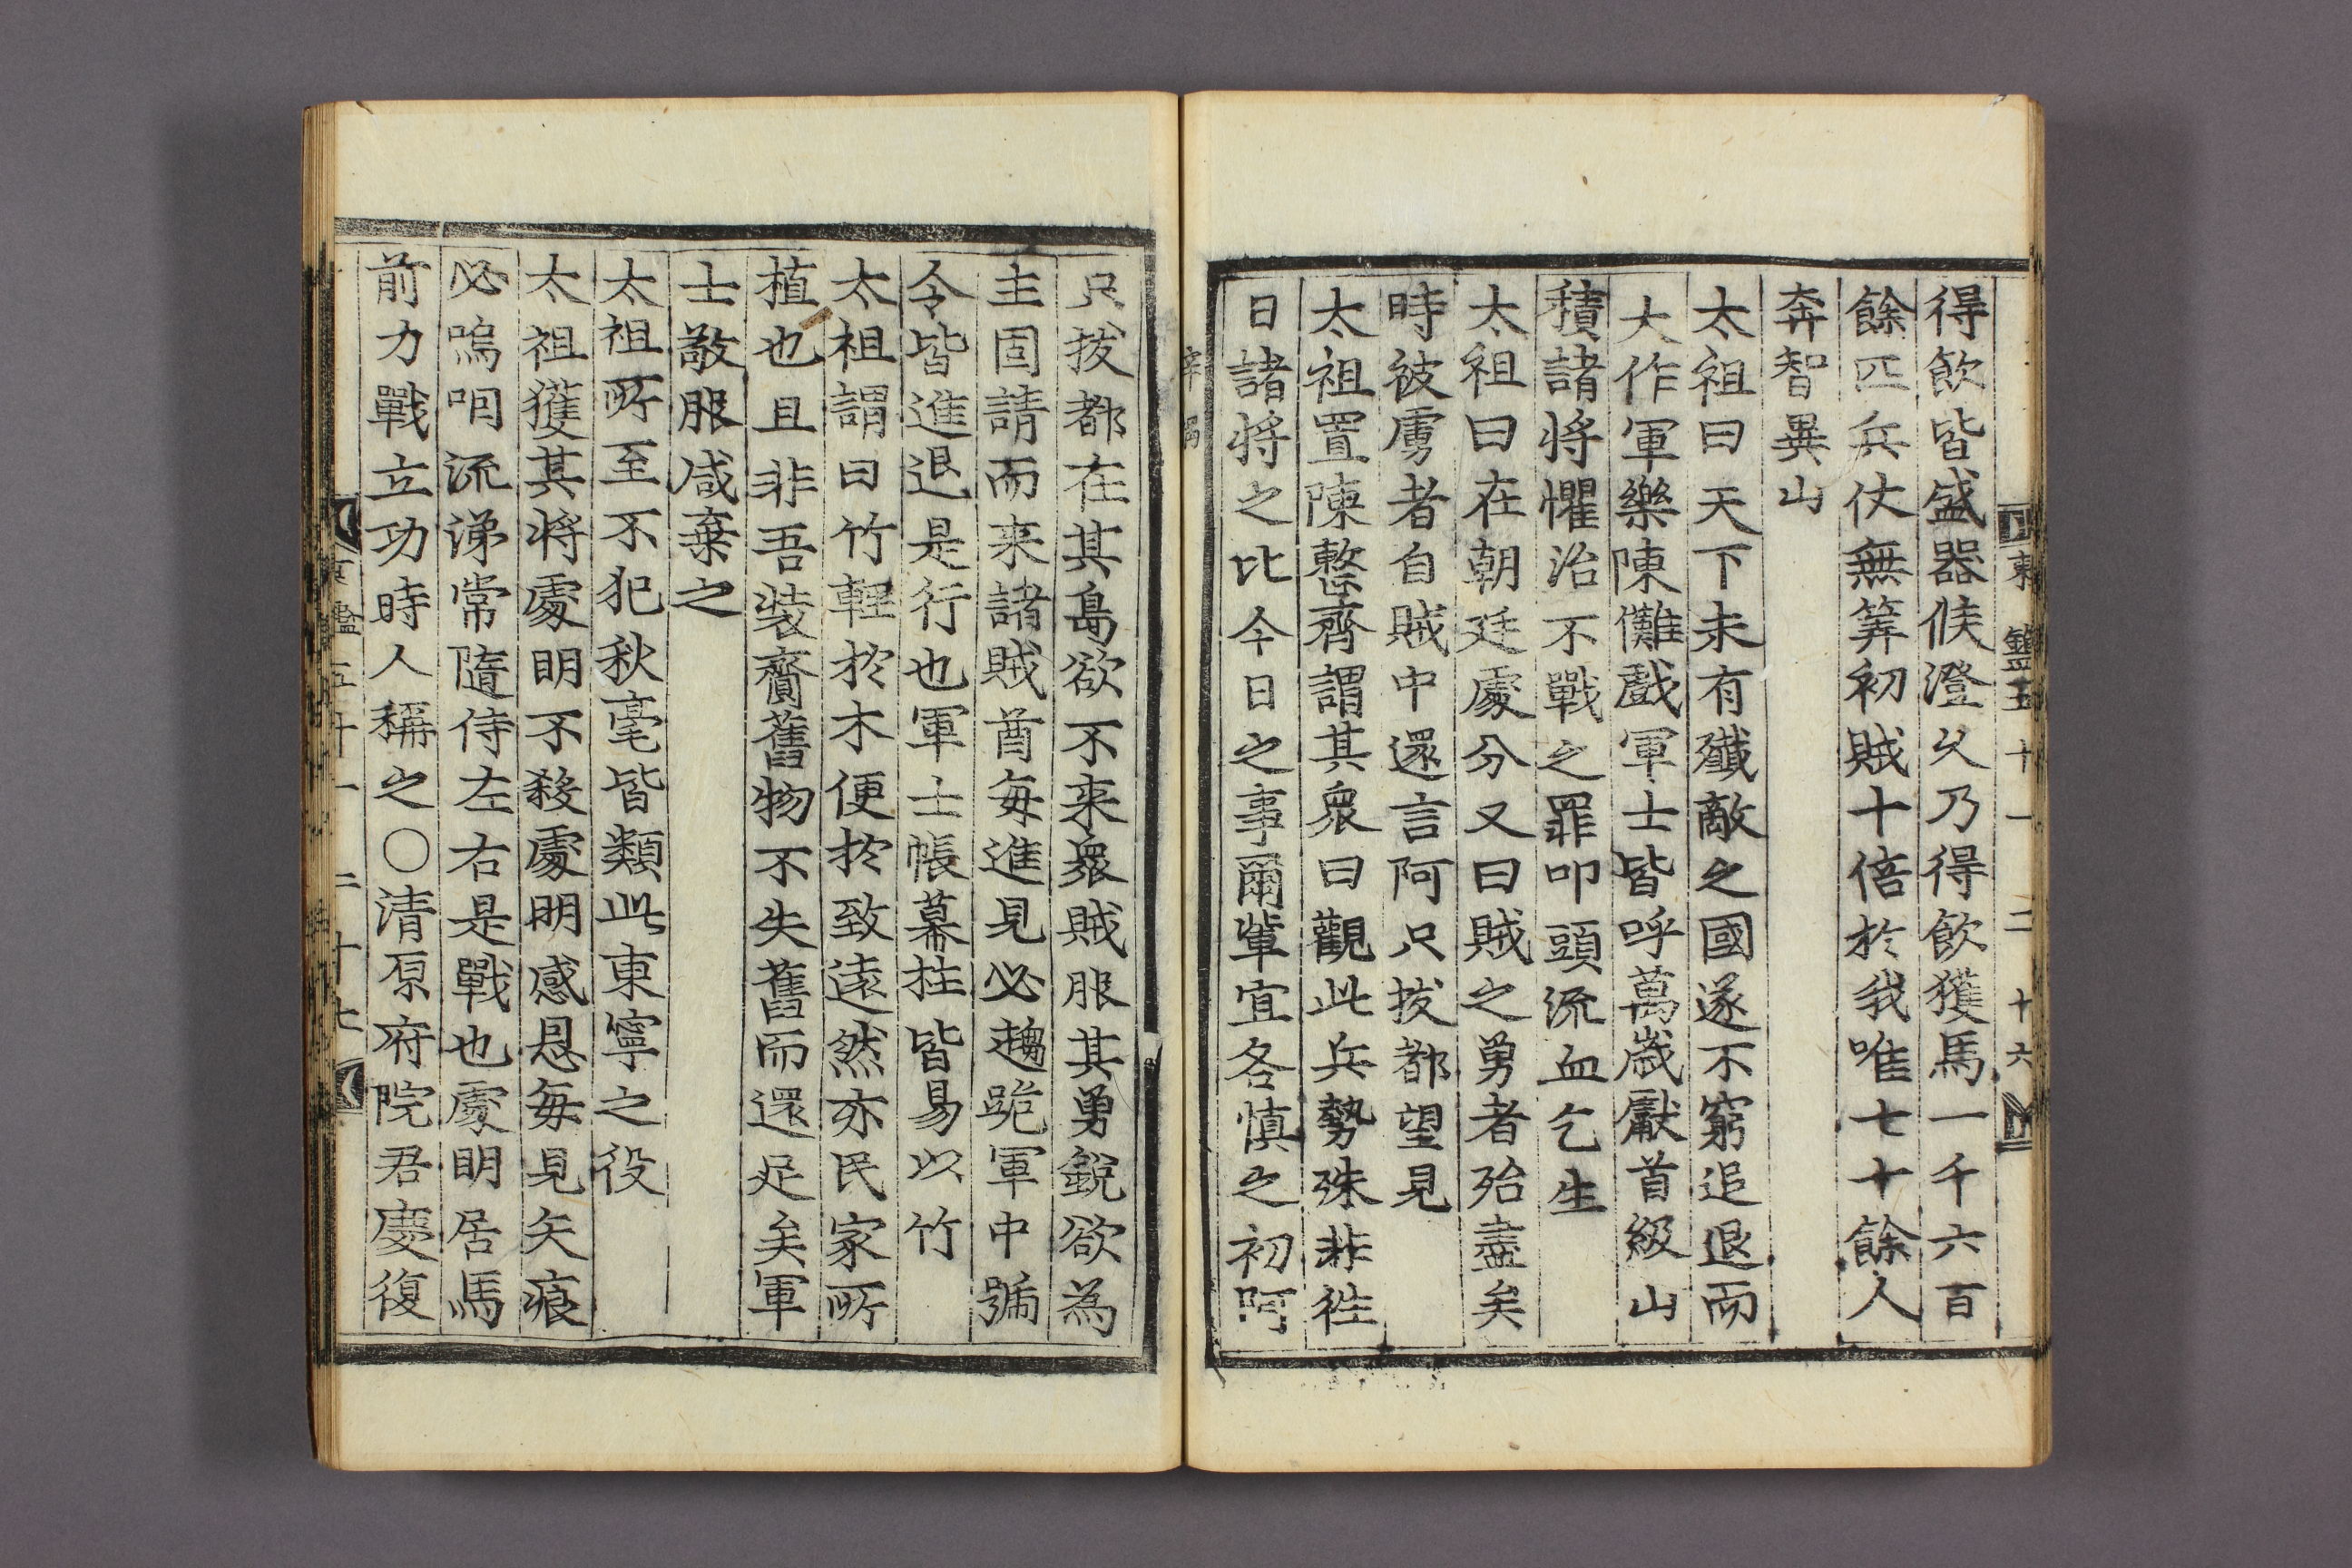 東鑑五十一 二十六
得飮皆盛器候澄久乃得飮獲馬一千六百
餘匹兵仗無筭初賊十倍於我唯七十餘人
奔智異山
太祖曰天下未有殲敵之國遂不窮追退而
大作軍樂陳儺戱軍士皆呼萬歲獻首級山
積諸將懼治不戰之罪叩頭流血乞生
太祖曰在朝廷處分又曰賊之勇者殆盡矣
時彼虜者自賊中還言阿只拔都望見
太祖置陳整齊謂其衆曰觀此兵勢殊非徃
日諸將之比今日之事爾輩宜各慎之初阿
辛禑
只拔都在其島欲不来衆賊服其勇銳欲爲
主固請而来諸賊酋每進見必趨跪軍中號
令皆進退是行也軍士帳幕柱皆易以竹
太祖謂曰竹輕於木便於致遠然亦民家所
植也且非吾裝齎舊物不失舊而還足矣軍
士敬服咸棄之
太祖所至不犯秋毫皆類此東寧之役
太祖獲其將處明不殺處明感恩每見矢痕
必嗚咽流涕常隨侍左右是戰也處明居馬
前力戰立功時人稱之○清原府院君慶復
鑑五十一 二十七